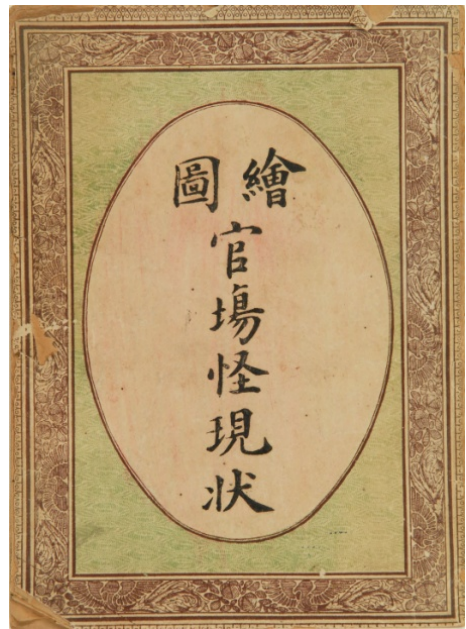 繪圖
官塲怪現狀